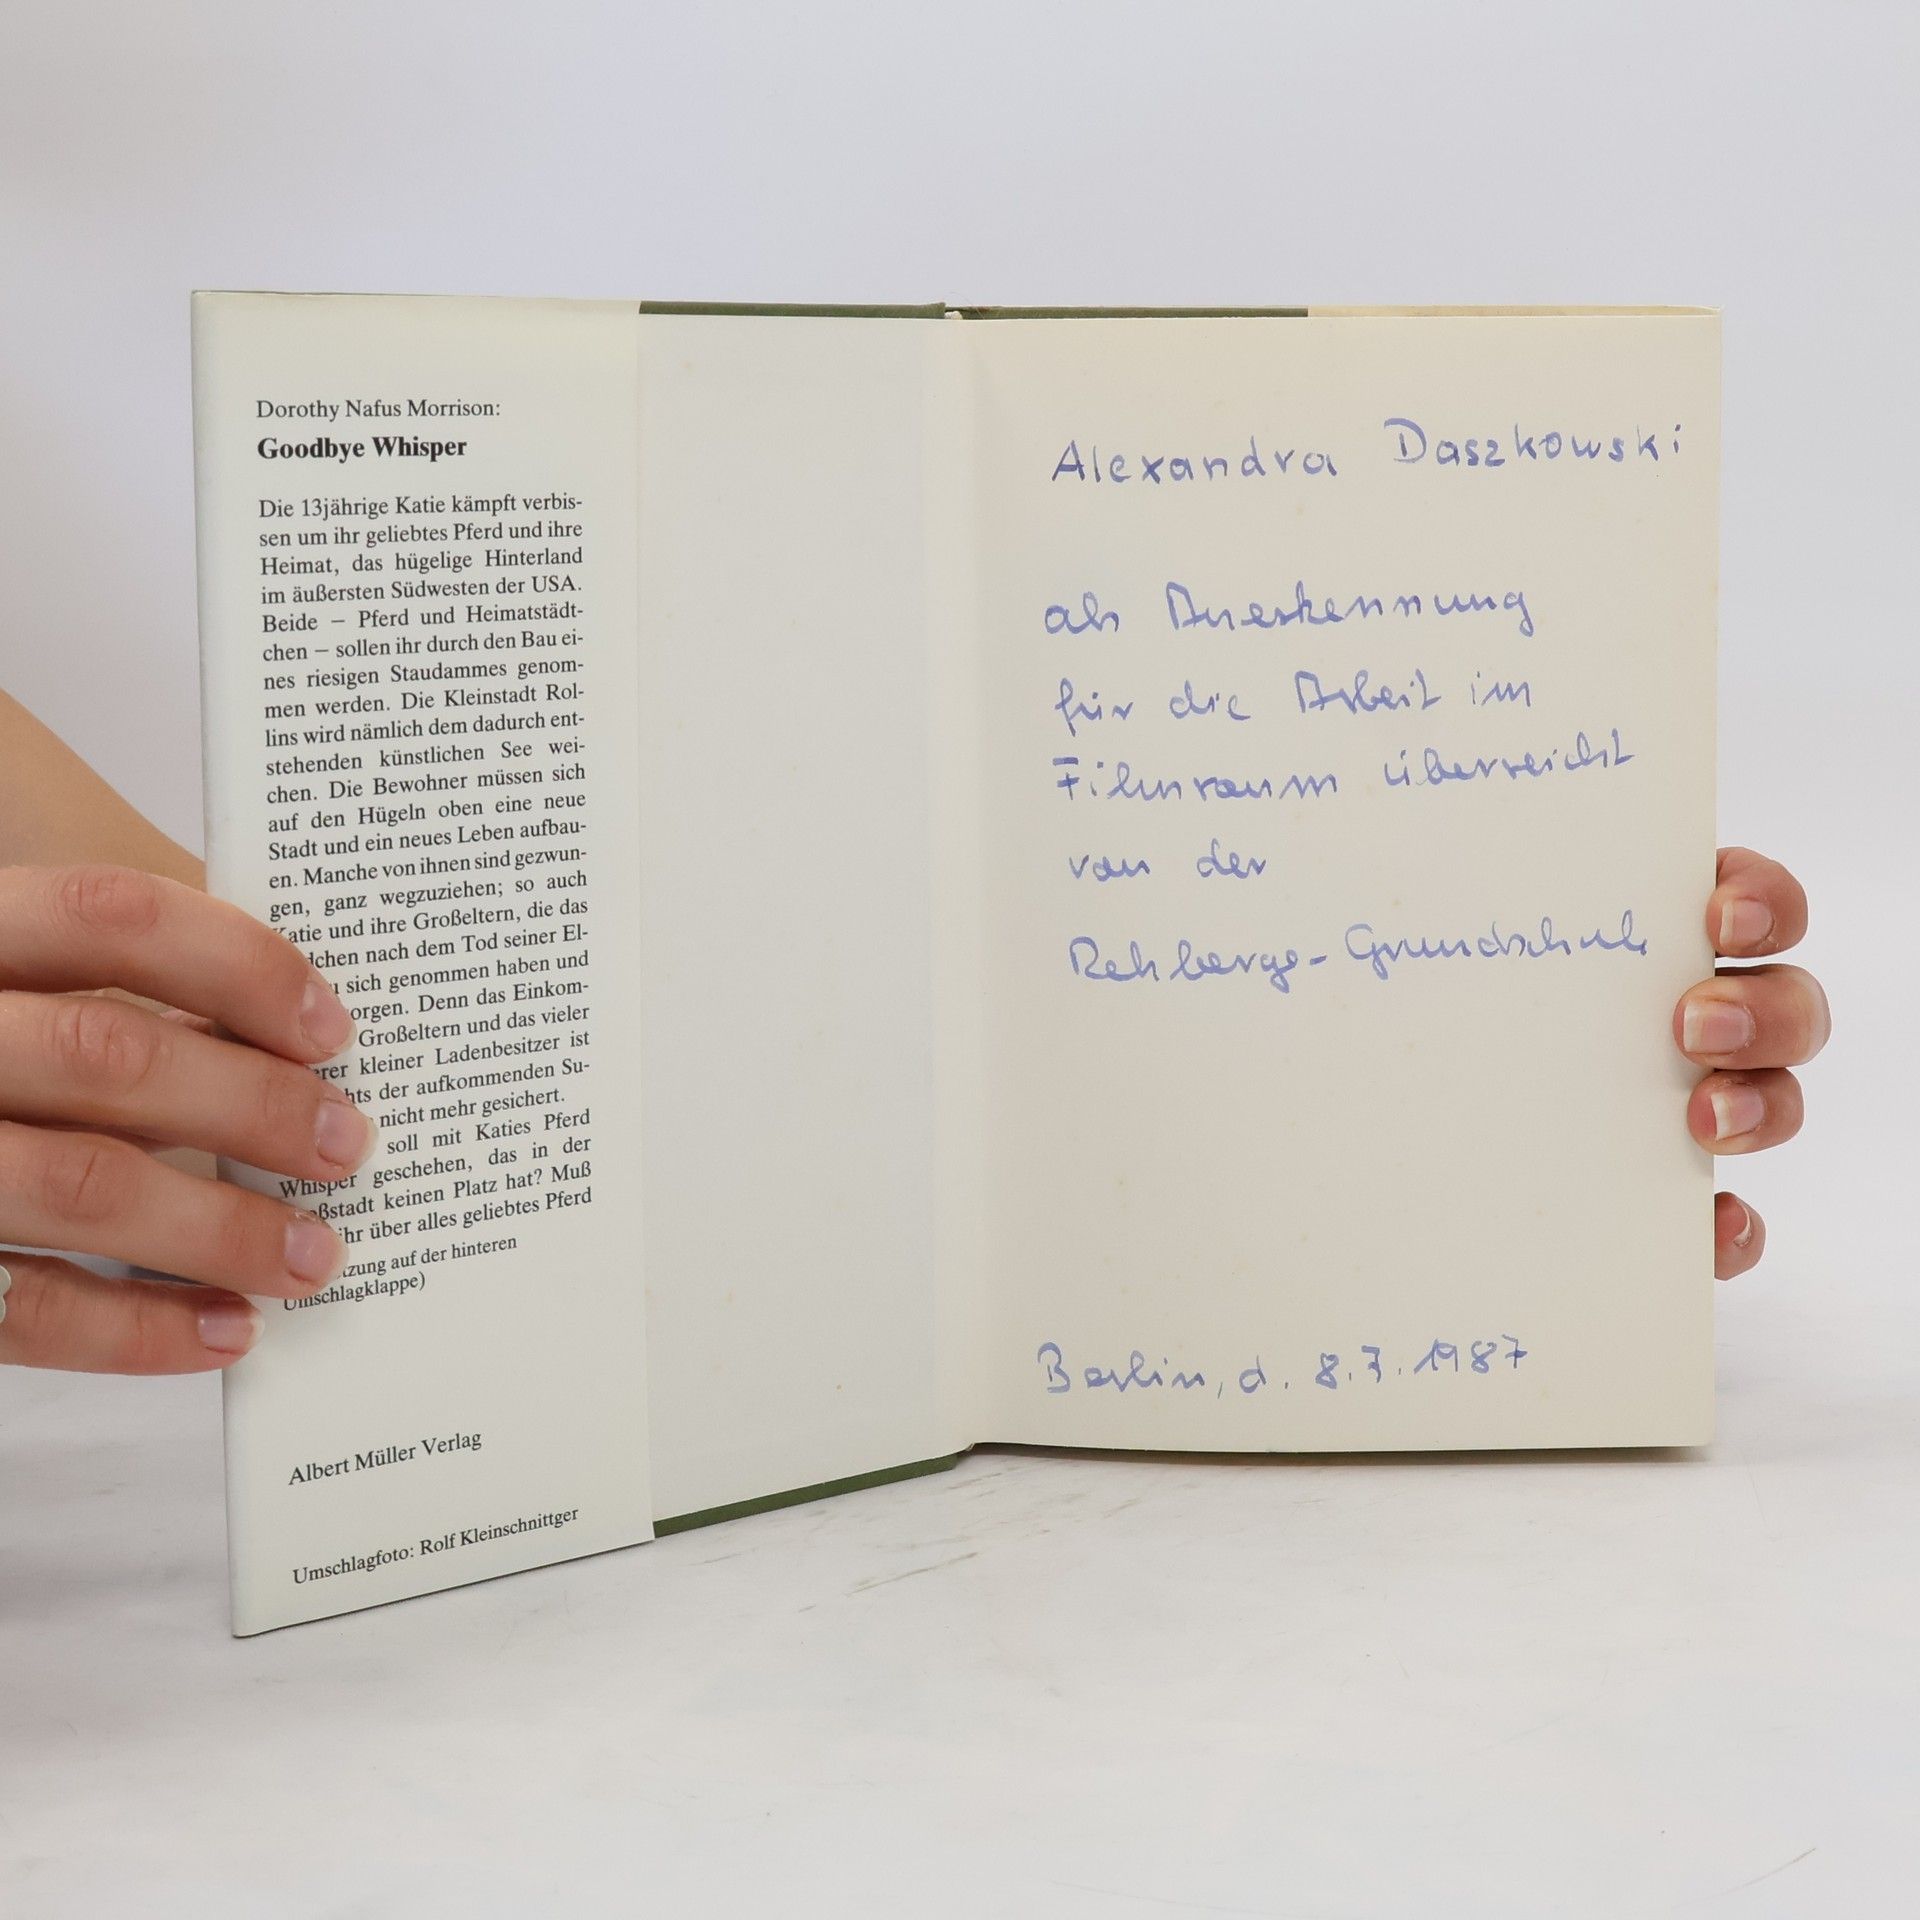 Dorothy Nafus Morrison:
Goodbye Whisper
Die 13jährige Katie kämpft verbis-
sen um ihr geliebtes Pferd und ihre
Heimat, das hügelige Hinterland
im äußersten Südwesten der USA.
Beide – Pferd und Heimatstädt-
chen – sollen ihr durch den Bau ei-
nes riesigen Staudammes genom-
men werden. Die Kleinstadt Rol-
lins wird nämlich dem dadurch ent-
stehenden künstlichen See wei-
chen. Die Bewohner müssen sich
auf den Hügeln oben eine neue
Stadt und ein neues Leben aufbau-
en. Manche von ihnen sind gezwun-
gen, ganz wegzuziehen; so auch
Katie und ihre Großeltern, die das
dchen nach dem Tod seiner El-
sich genommen haben und
orgen. Denn das Einkom-
Großeltern und das vieler
erer kleiner Ladenbesitzer ist
hts der aufkommenden Su-
nicht mehr gesichert.
soll mit Katies Pferd
Whisper geschehen, das in der
oßstadt keinen Platz hat? Muß
ihr über alles geliebtes Pferd
tzung auf der hinteren
Umschlagklappe)
Albert Müller Verlag
Umschlagfoto: Rolf Kleinschnittger
Alexandra Daszkowski
als Anerkennung
für die Arbeit im
Filmraum überreicht
von der
Rehberge-Grundschule
Berlin, d. 8.7.1987